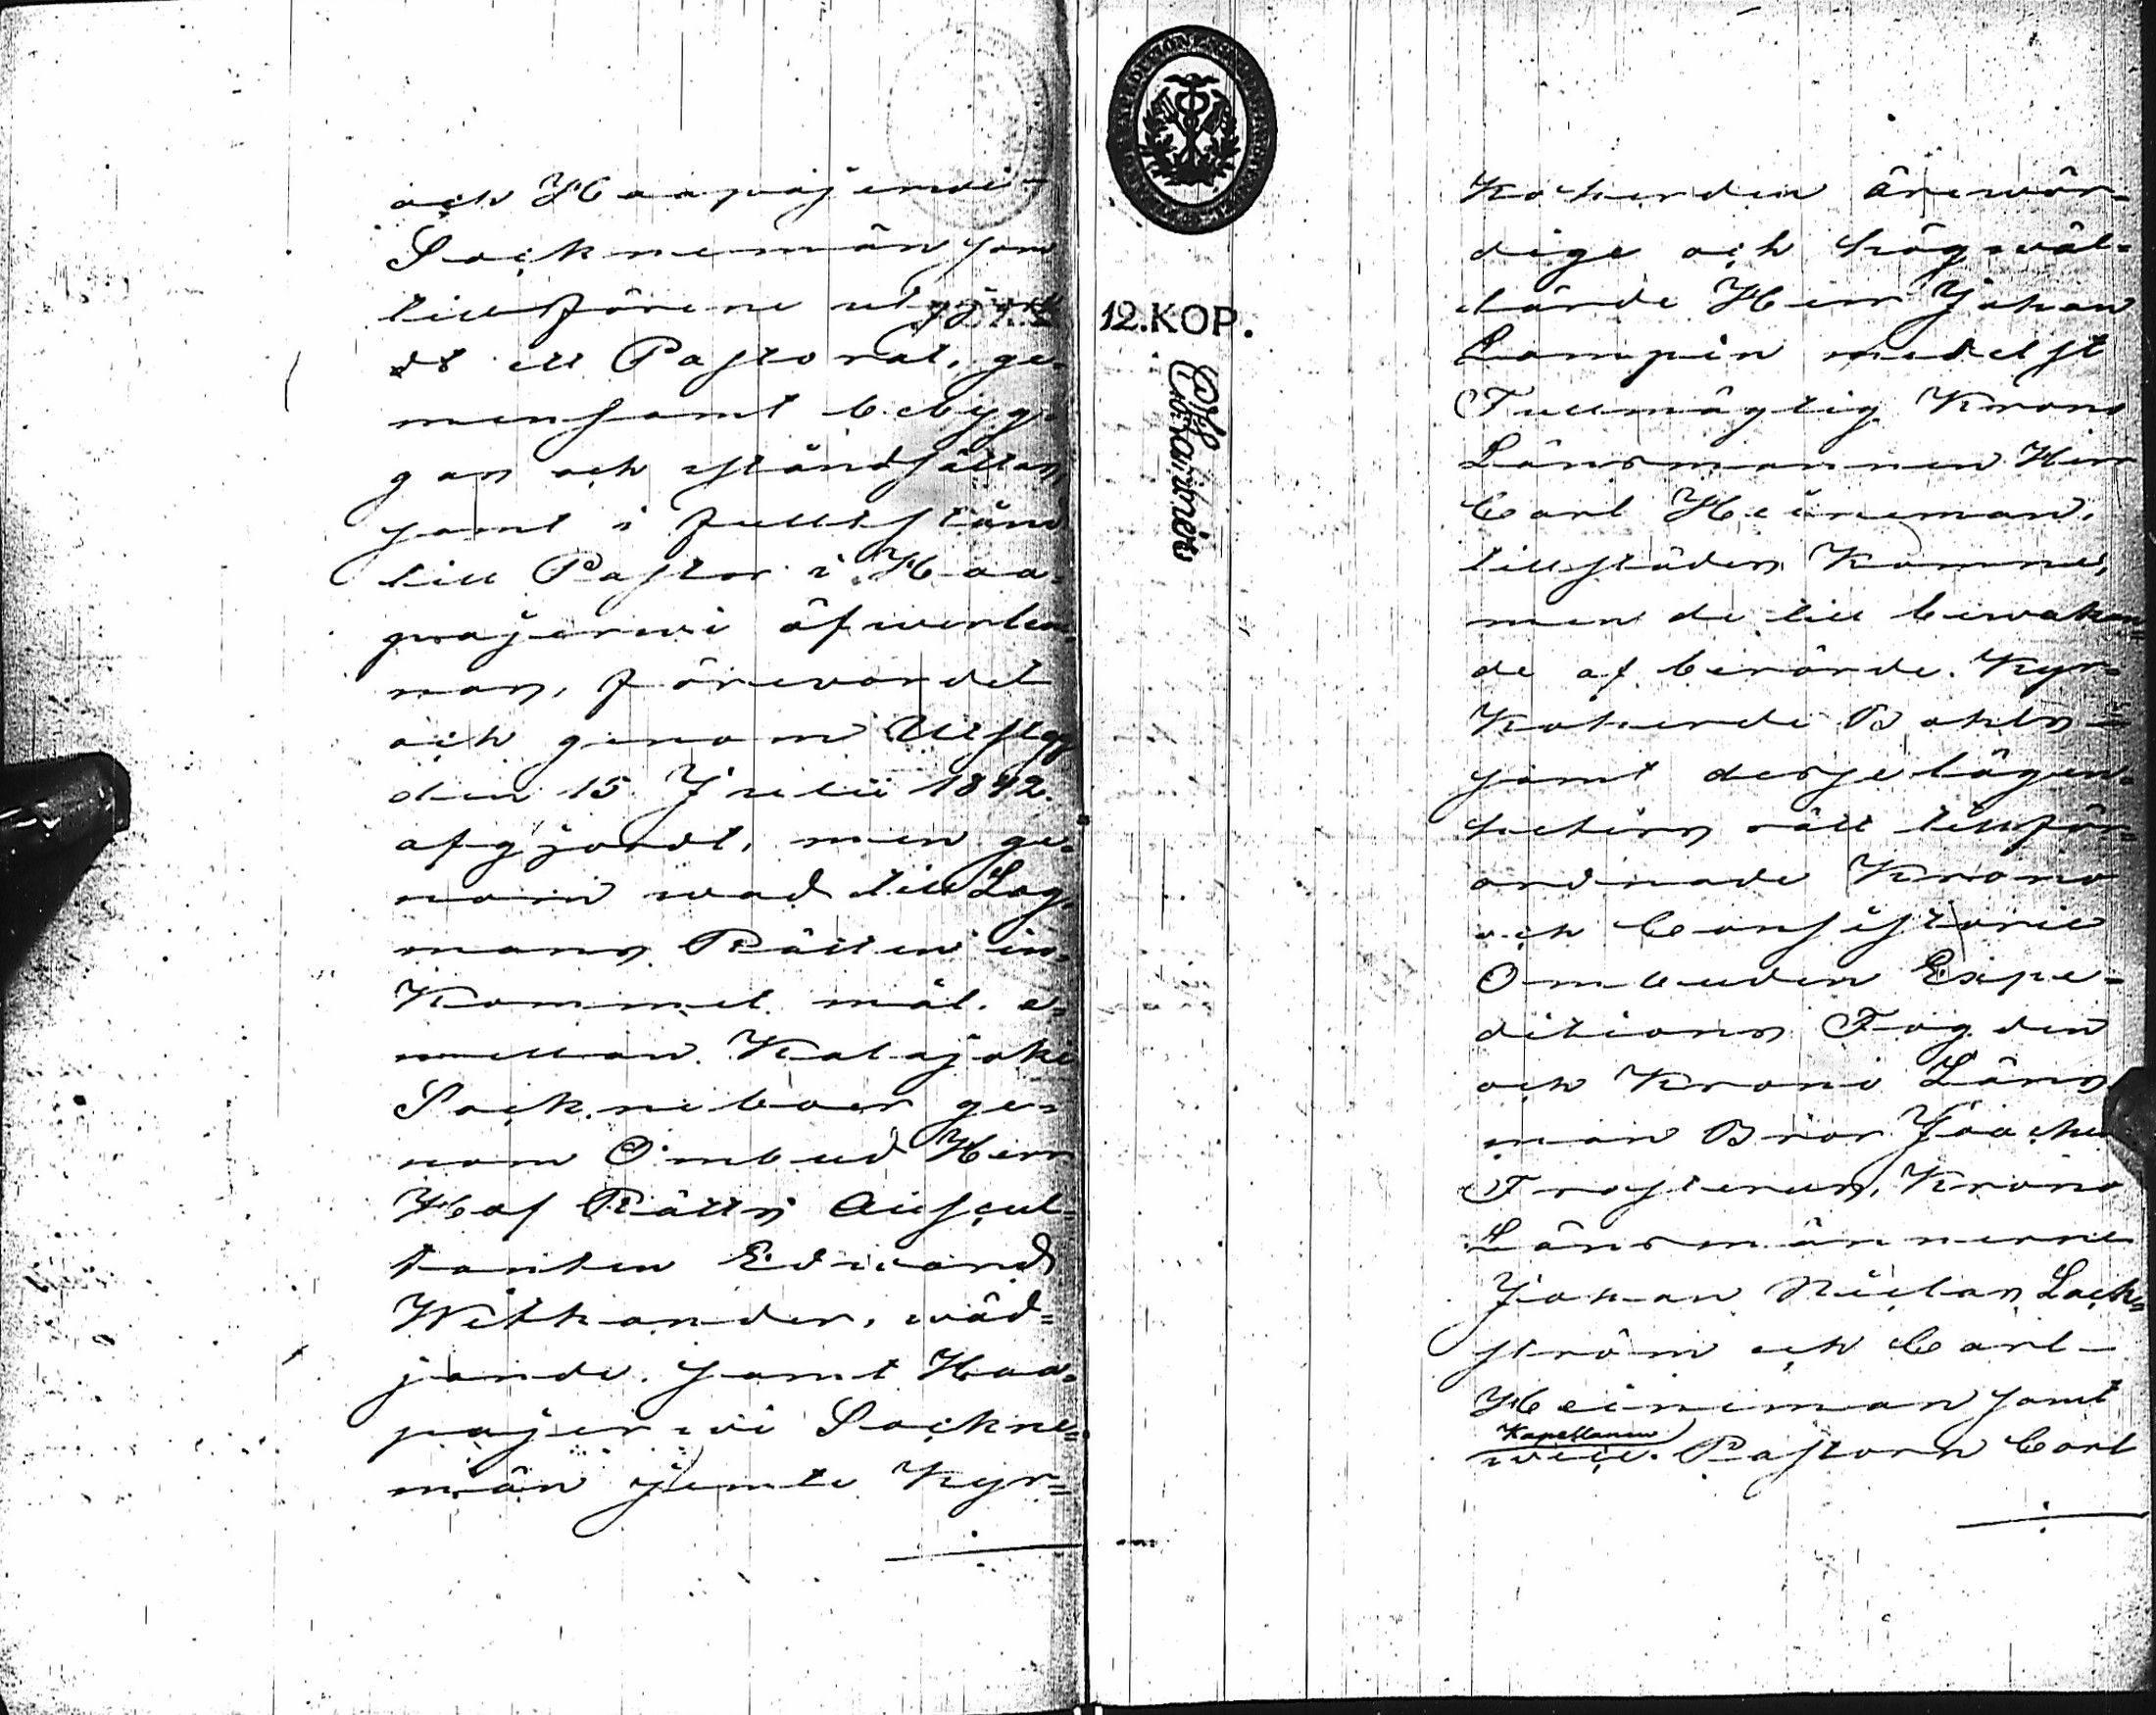 och Haapajerwi
Socknemän som
tillförene utgjor
dt ett Pastorat, ge-
mensamt bebyg-
gas och iståndsättas
samt i fullt stånd
till Pastor i Haa-
pajerwi öfwerlem-
nas, förewordet
och genom Utslag
den 15 Julii 1842.
afgjordt, men ge-
nom wad till Lag-
mans Rätten in-
kommet mål e-
mellan Kalajoki
Sockneboer ge-
nom Ombud Herr
Hof Rätts Auscul-
tanten Edvard
Witkander, wäd=
jande, samt Haa-
pajerwi Sockne=
män jemte Kyr=
12.KOP.
koherden ärewör-
dige och högwäl-
lärde Herr Johan
Lampén medelst
Fullmägtig Krono
Länsmannen Herr
Carl Heineman,
tillstädes komne,
men de till bewakan=
de af berörde Kyr-
koherde Bohls
samt desse lägen-
heters rätt tillför-
ordnade Krono
och Consistorie
Ombuden Expe-
ditions Fogden
och Krono Läns
man Bror Joachim
Frosterus, Krono
Länsmännerne
Johan Niclas Lack=
ström och Carl
Heineman samt
Kapellanen
vice Pastorn Carl